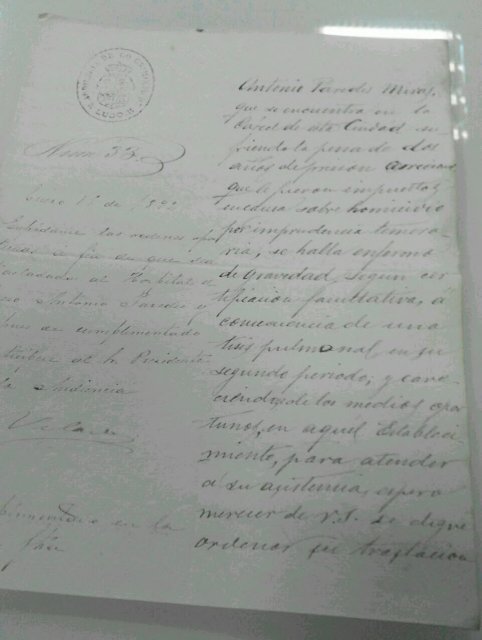 LUGO
Num. 33.
Enero 1º de 18
Expídanse las ordenes
a fin de que sea
trasladado al Hospital el
preso Antonio Paredes y
de cumplimentado
al Sr Presidente
la Audiencia
en la
fha
Antonio Paredes Mivas,
que se encuentra en la
Cárcel de esta Ciudad su
friendo la pena de dos
años de prision correccional
que le fueron impuestos
en causa sobre homicidio
por imprudencia temera-
ria, se halla enfermo
de gravedad, segun cer
tificacion facultativa, á
consecuencia de una
tisis pulmonal en su
segundo periodo; y care-
ciéndose de los medios opor
tunos, en aquel Estableci-
miento, para atender
á su asistencia, espero
merecer de V.S. se digne
ordenar su traslacion